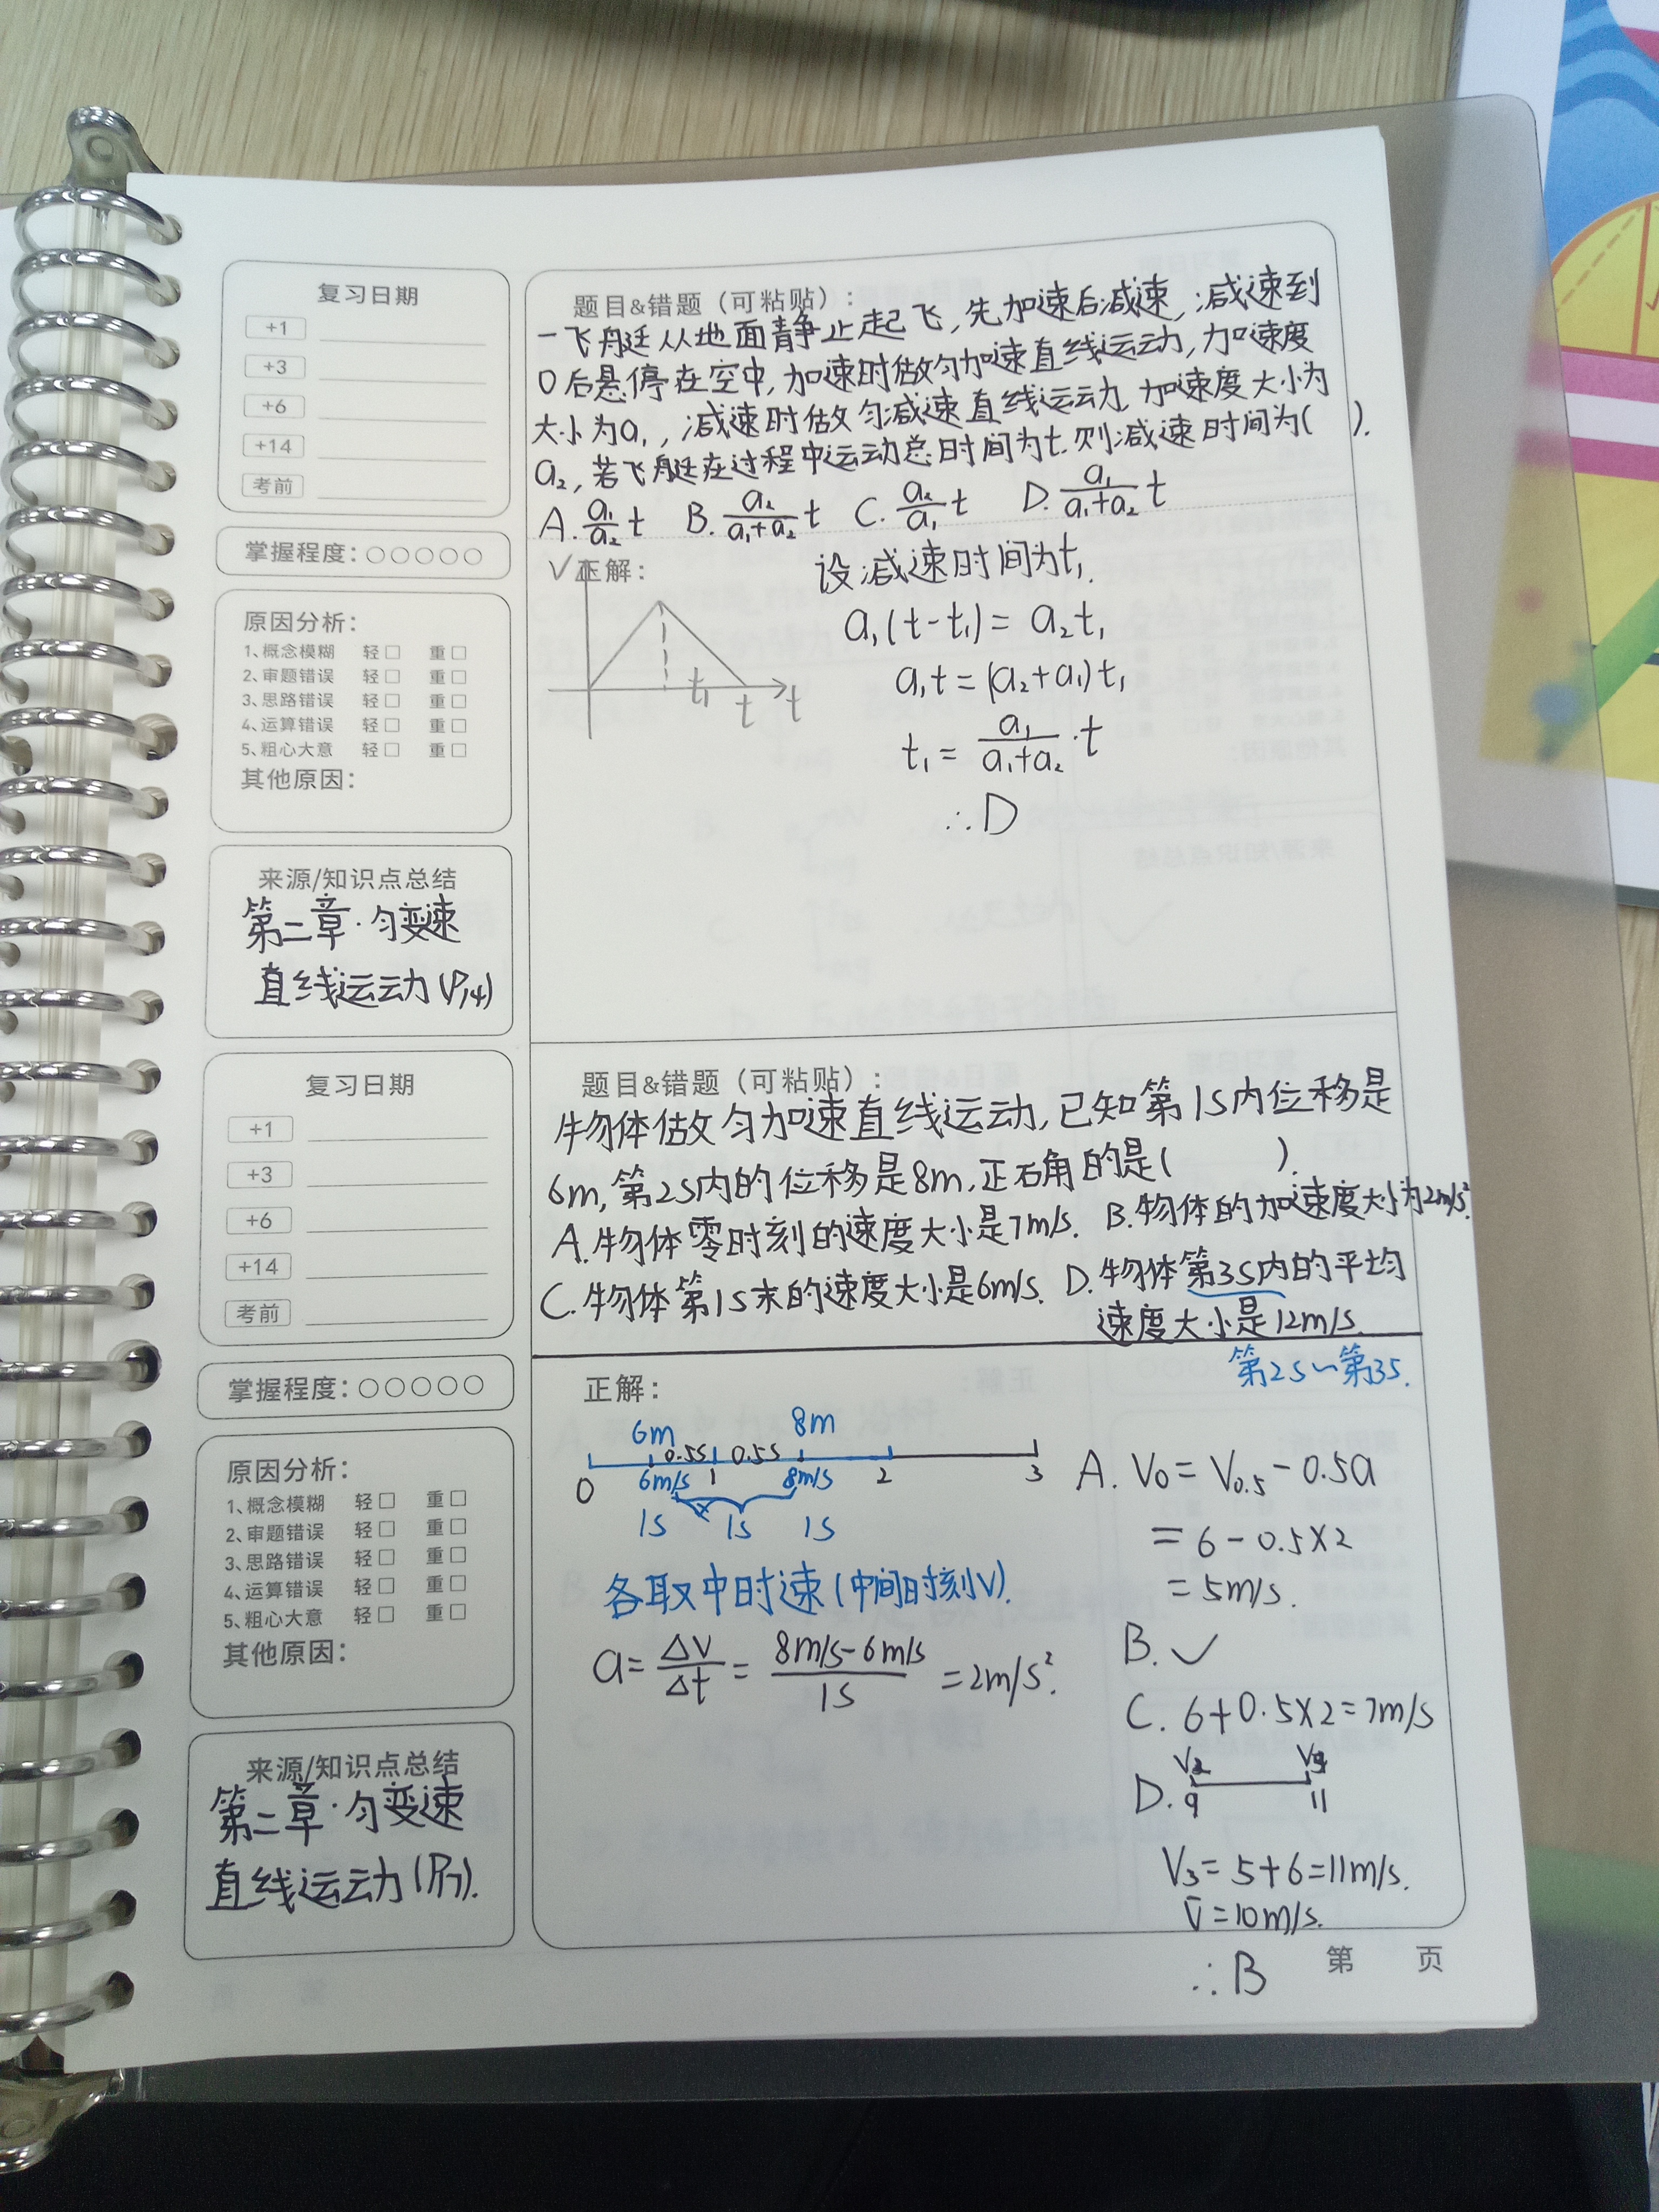 复习日期
+1
+3
+6
+14
考前
掌握程度：○○○○○
原因分析：
1、概念模糊 轻□ 重□
2、审题错误 轻□ 重□
3、思路错误 轻□ 重□
4、运算错误 轻□ 重□
5、粗心大意 轻□ 重□
其他原因：
来源/知识点总结
第二章·匀变速
直线运动(P14)
题目&错题（可粘贴）：
一飞艇从地面静止起飞,先加速后减速,减速到
0后悬停在空中,加速时做匀加速直线运动,加速度
大小为a₁,减速时做匀减速直线运动,加速度大小为
a₂,若飞艇在过程中运动总时间为t.则减速时间为( ).
A. a₁/a₂ t B. a₂/(a₁+a₂) t C. a₂/a₁ t D. a₁/(a₁+a₂) t
正解：
V
t₁
t
t
设减速时间为t₁.
a₁(t-t₁)=a₂t₁
a₁t=(a₂+a₁)t₁
t₁= a₁/(a₁+a₂) ·t
∴D
复习日期
+1
+3
+6
+14
考前
掌握程度：○○○○○
原因分析：
1、概念模糊 轻□ 重□
2、审题错误 轻□ 重□
3、思路错误 轻□ 重□
4、运算错误 轻□ 重□
5、粗心大意 轻□ 重□
其他原因：
来源/知识点总结
第二章·匀变速
直线运动
题目&错题（可粘贴）：
物体做匀加速直线运动,已知第1s内位移是
6m,第2s内的位移是8m,正确的是( ).
A.物体零时刻的速度大小是7m/s. B.物体的加速度大小为2m/s².
C.物体第1s末的速度大小是6m/s. D.物体第3s内的平均
速度大小是12m/s.
第2s~第3s.
正解：
6m 8m
0.5s 0.5s
0 6m/s 1 8m/s 2 3
1s 1s 1s
各取中时速(中间时刻V).
a=Δv/Δt=(8m/s-6m/s)/1s=2m/s².
A. V₀=V₀.₅-0.5a
=6-0.5×2
=5m/s.
B.✓
C. 6+0.5×2=7m/s
D. V₂ V₃
9 11
V₃=5+6=11m/s.
V̄=10m/s.
∴B
第 页